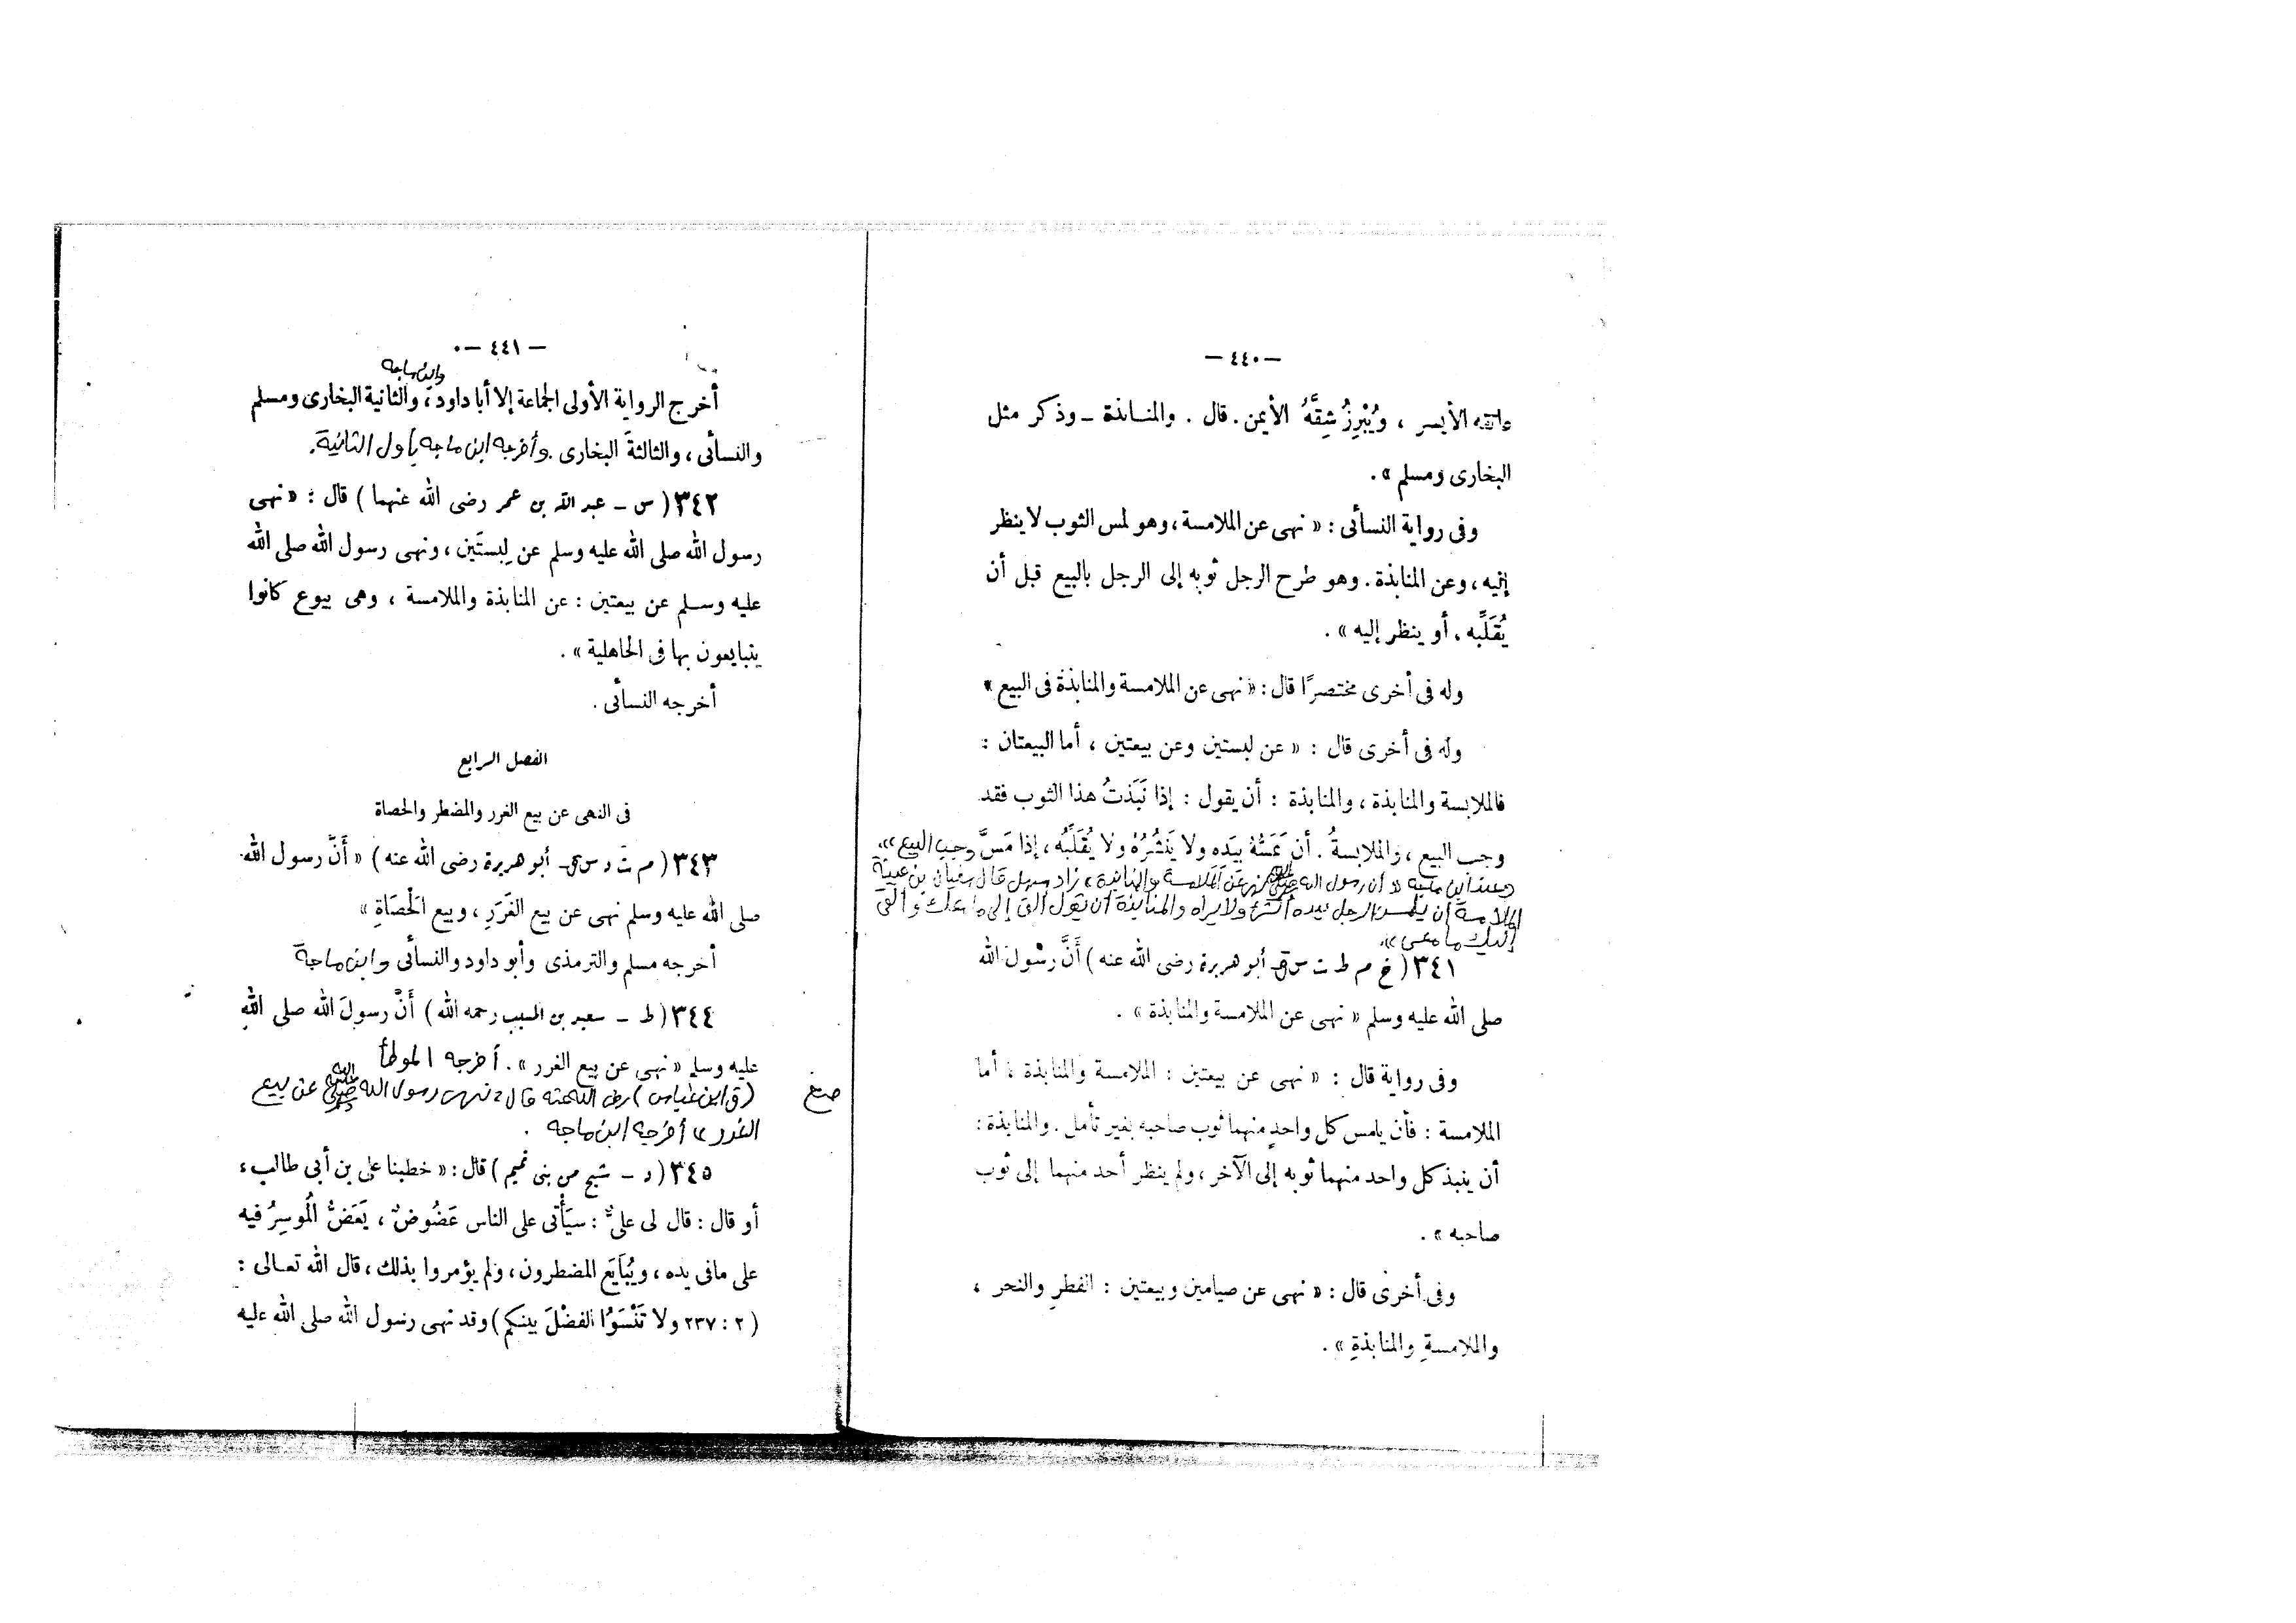 — ٤٤٠ —
عاتقه الأيسر ، ويُبْرِزُ شِقَّهُ الأيمن . قال . والمنابذة ـ وذكر مثل
البخارى ومسلم » .
وفى رواية النسائى : « نهى عن الملامسة ، وهو لمس الثوب لا ينظر
إليه ، وعن المنابذة . وهو طرح الرجل ثوبه إلى الرجل بالبيع قبل أن
يُقَلِّبه ، أو ينظر إليه » .
وله فى أخرى مختصرًا قال : « نهى عن الملامسة والمنابذة فى البيع »
وله فى أخرى قال : « عن لبستين وعن بيعتين ، أما البيعتان :
فالملابسة والمنابذة ، والمنابذة : أن يقول : إذا نَبَذتُ هذا الثوب فقد
وجب البيع ، والملابسةُ . أن يَمَسَّهُ بيَدِه ولا يَنْشُرُهُ ولا يُقَلِّبُه ، إذا مَسَّ وجب البيع » .
وعند ابن ماجه « أن رسول الله ﷺ نهى عن الملامسة والمنابذة » زاد سهل قال سفيان بن عيينة
الملامسة أن يلمس الرجل بيده الشئ ولا يراه والمنابذة أن يقول ألق إلى ما معك وألقى
إليك ما معى » .
٣٤١ ( خ م ط ت س ق ـ أبو هريرة رضى الله عنه ) أَنَّ رسُولَ الله
صلى الله عليه وسلم « نهى عن الملامسة والمنابذة » .
وفى رواية قال : « نهى عن بيعتين : الملامسة والمنابذة ، أما
الملامسة : فأن يلمس كل واحدٍ منهما ثوب صاحبه بغير تأمل . والمنابذة :
أن ينبذ كل واحد منهما ثوبه إلى الآخر ، ولم ينظر أحد منهما إلى ثوب
صاحبه » .
وفى أخرى قال : « نهى عن صيامين وبيعتين : الفطرِ والنحر ،
والملامسةِ والمنابذةِ » .
— ٤٤١ —
وابن ماجه
أخرج الرواية الأولى الجماعة إلا أبا داود ، والثانية البخارى ومسلم
والنسائى ، والثالثةَ البخارى . وأخرجه ابن ماجه بأول الثانية .
٣٤٢ ( س ـ عبد الله بن عمر رضى الله عنهما ) قال : « نهى
رسول الله صلى الله عليه وسلم عن لِبستَين ، ونهى رسول الله صلى الله
عليه وسلم عن بيعتين : عن المنابذة والملامسة ، وهى بيوع كانوا
يتبايعون بها فى الجاهلية » .
أخرجه النسائى .
الفصل الرابع
فى النهى عن بيع الغرر والمضطر والحصاة
٣٤٣ ( م ت د س ق ـ أبو هريرة رضى الله عنه ) « أَنَّ رسول الله
صلى الله عليه وسلم نهى عن بيع الغَرَرِ ، وبيع الْحَصَاةِ »
أخرجه مسلم والترمذى وأبو داود والنسائى وابن ماجة
٣٤٤ ( ط ـ سعيد بن المسيب رحمه الله ) أَنَّ رسولَ الله صلى الله
عليه وسلم « نهى عن بيع الغرر » . أخرجه الموطأ
( ق ابن عباس ) رضى الله عنه قال : نهى رسول الله ﷺ عن بيع
الغرر » أخرجه ابن ماجه .
٣٤٥ ( د ـ شيخ من بنى تميم ) قال : « خطبنا على بن أبى طالب ،
أو قال : قال لى علىٌّ : سيَأْتى على الناس عَضُوضٌ ، يَعَضُّ الْمُوسِرُ فيه
على مافى يده ، ويُبَايَع المضطرون ، ولم يؤمروا بذلك ، قال الله تعالى :
( ٢ : ٢٣٧ ولا تَنْسَوُا الفضْلَ بينكم ) وقد نهى رسول الله صلى الله عليه